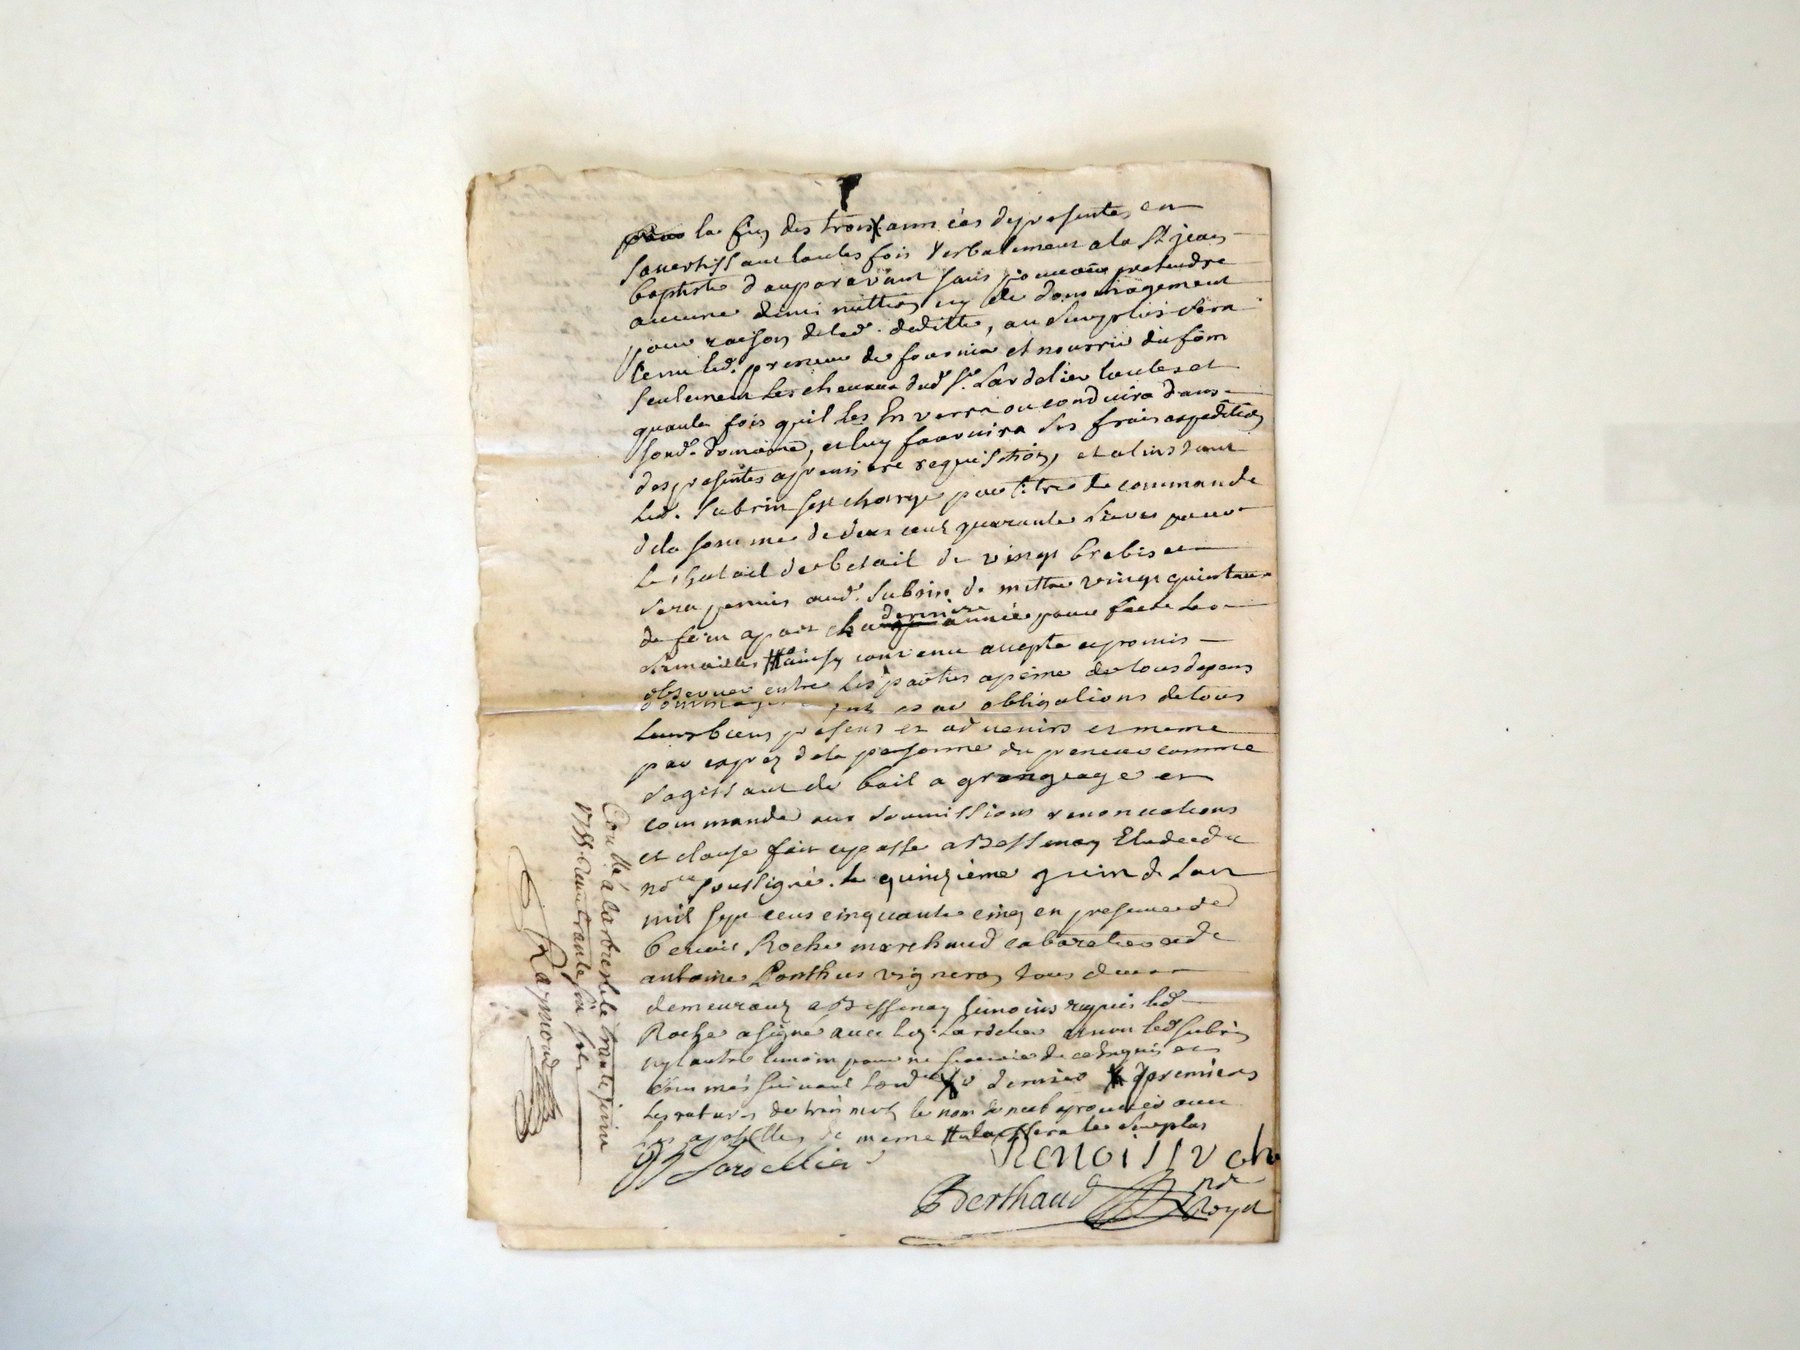 la fin des trois années des presentes en
savertissant toutes fois verbalement a la St jean
baptiste d'auparavant sans pouvoir pretendre
aucune diminution ny de dommagement
pour raison de lad. deditte, au surplus sera
tenu led. preneur de fournir et nourrir du foin
seulement les chevaux dud. Sr. Lardelier toutes et
quantes fois quil les Enverra ou conduira dans
sond. domaine, et luy fournira des frais expedition
des presentes a premiere requisition, et a linstant
led. Subrin sest chargé par titre de commande
de la somme de deux cent quarante livres pour
le chatail de betail de vingt brebis et
sera permis aud. Subrin de mettre vingt quintaux
de foin a part derniere année pour faire les
ainsy convenu accepté et promis
observer entre les parties a peine de tous depens
dommages et aux obligations de tous
leurs biens presens et advenirs et meme
par exprez de la personne du preneur comme
sagissant de bail a grangeage et
commande aux soumissions renonciations
et clause fait et passé a Bessenay Etude du
nore soussigné. le quinzieme juin de Lan
mil sept cens cinquante cinq en presence de
benoit Roche marchand cabaretier et de
antoine Ponthus vigneron tous deux
demeurant a Bessenay temoins requis led.
Roche a signé avec led. Lardelier et non led. Subrin
ny lautre temoin pour ne scavoir de ce Enquis et
sommés suivant dernier premiers
les ratures de trois mots le nom de neuf aprouvés avec
les apostilles de meme le surplus
Lardellier
Benoit
Berthaud nore Royal
Controllé a Larbresle le trante juin
1755. Reçu trante six sols
Raymond